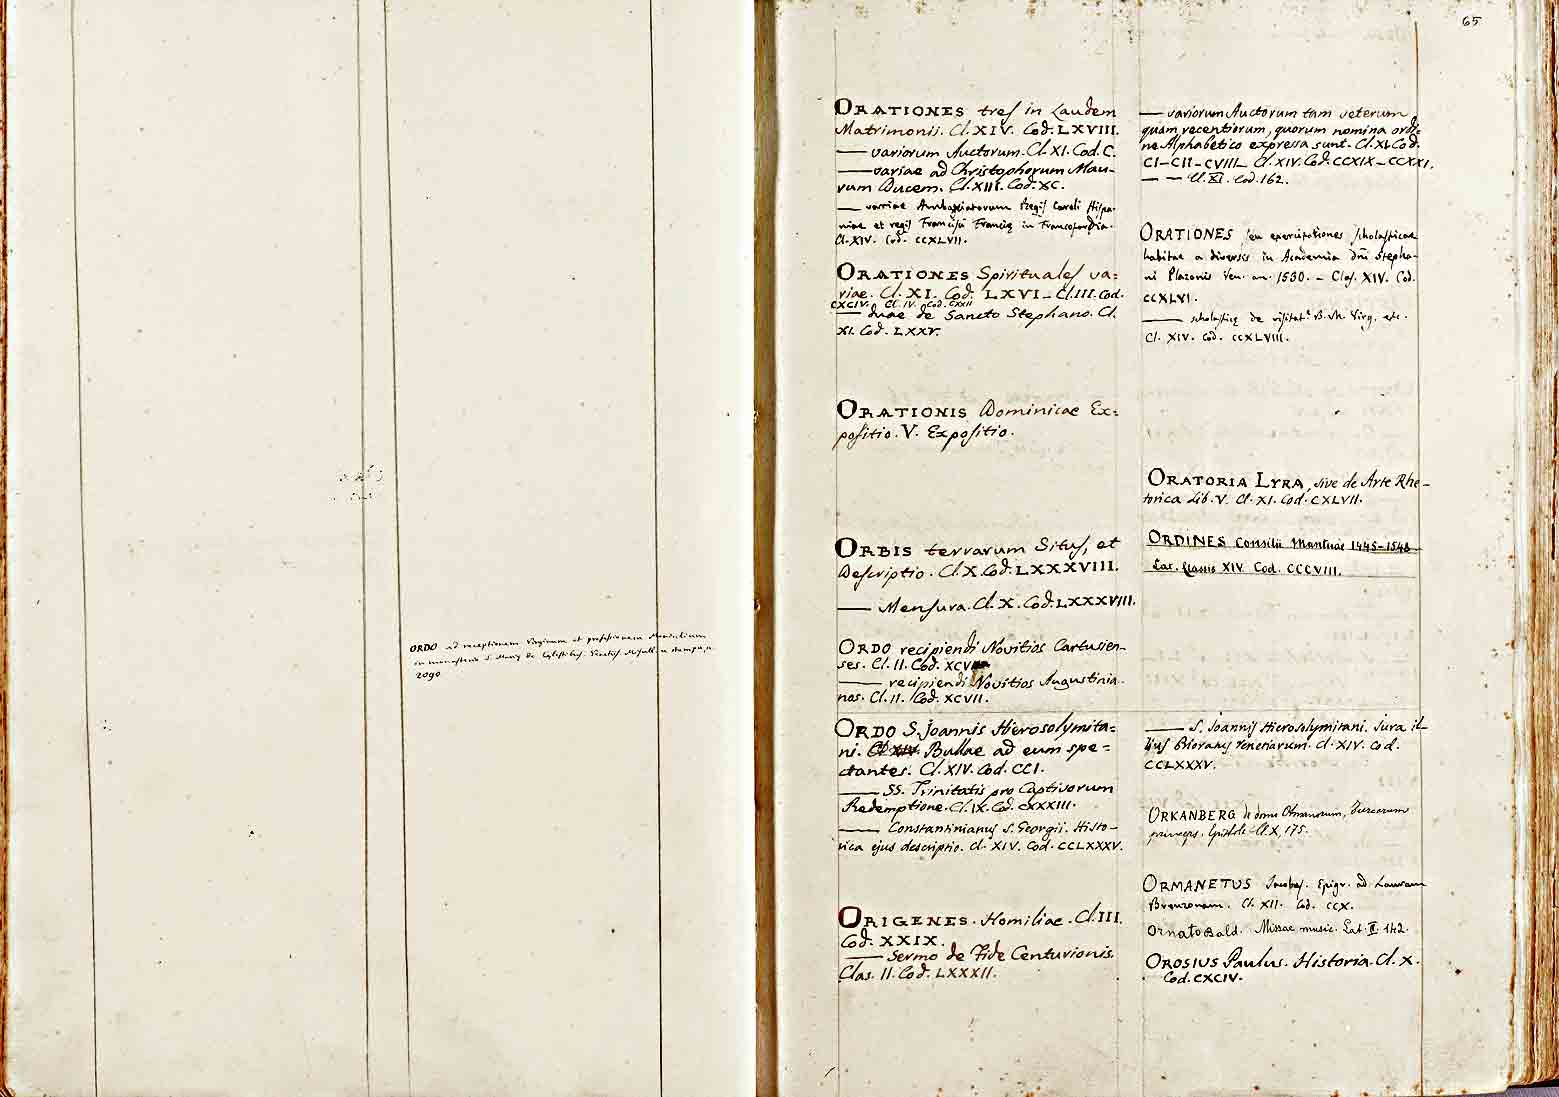 ORDO ad receptionem Virginum et professionem Monialium
in monasterio S. Mariæ de Cœlestibus.
2090
65
ORATIONES tres in Laudem
Matrimonii. Cl. XIV. Cod. LXVIII.
— variorum Auctorum. Cl. XI. Cod. C.
— variae ad Christophorum Mau-
rum Ducem. Cl. XIII. Cod. XC.
— variae Ambasciatorum Regis Caroli Hispa-
niae et regis Francisci Franciæ in Francofordia.
Cl. XIV. Cod. CCXLVII.
ORATIONES Spirituales va:
riae. Cl. XI. Cod. LXVI – Cl. III. Cod.
CXCIV. Cl. IV. Cod. CXXII
— duae de Sancto Stephano. Cl.
XI. Cod. LXXV.
ORATIONIS Dominicae Ex:
positio. V. Expositio.
ORBIS terrarum Situs, et
Descriptio. Cl. X. Cod. LXXXVIII.
— Mensura. Cl. X. Cod. LXXXVIII.
ORDO recipiendi Novitios Cartusien-
ses. Cl. II. Cod. XCV
— recipiendi Novitios Augustinia-
nos. Cl. II. Cod. XCVII.
ORDO S. Joannis Hierosolymita:
ni. Cl. XIV. Bullae ad eum spe=
ctantes. Cl. XIV. Cod. CCI.
— SS. Trinitatis pro Captivorum
Redemptione. Cl. IX. Cod. CXXXIII.
— Constantinianus S. Georgii. Histo-
rica ejus descriptio. Cl. XIV. Cod. CCLXXXV.
ORIGENES. Homiliae. Cl. III.
Cod. XXIX.
— Sermo de Fide Centurionis.
Clas. II. Cod. LXXXII.
— variorum Auctorum tam veterum
quam recentiorum, quorum nomina ordi:
ne Alphabetico expressa sunt. Cl. XI. Cod.
CI – CII – CVIII – Cl. XIV. Cod. CCXIX – CCXXI.
— — Cl. XI. Cod. 162.
ORATIONES seu exercitationes scholasticae
habitae a diversis in Academia dñi Stepha-
ni Plazonis Ven. an. 1530. – Clas. XIV. Cod.
CCXLVI.
— scholasticę de visitat.e B. M. Virg. etc.
Cl. XIV. Cod. CCXLVIII.
ORATORIA LYRA, sive de Arte Rhe-
torica Lib. V. Cl. XI. Cod. CXLVII.
ORDINES Consilii Mantuae 1445–1548
Lat. Classis XIV Cod. CCCVIII.
— S. Joannis Hierosolymitani. Jura il-
lius Prioratus Venetiarum. Cl. XIV. Cod.
CCLXXXV.
ORKANBERG de domo Otmanorum, Turcarum
princeps. Epistole – Cl. X, 175.
ORMANETUS Jacobus. Epigr. ad Lauram
Brenzonam. Cl. XII. Cod. CCX.
Ornato Bald. Missae music. Lat. II 142.
OROSIUS Paulus. Historia. Cl. X.
Cod. CXCIV.